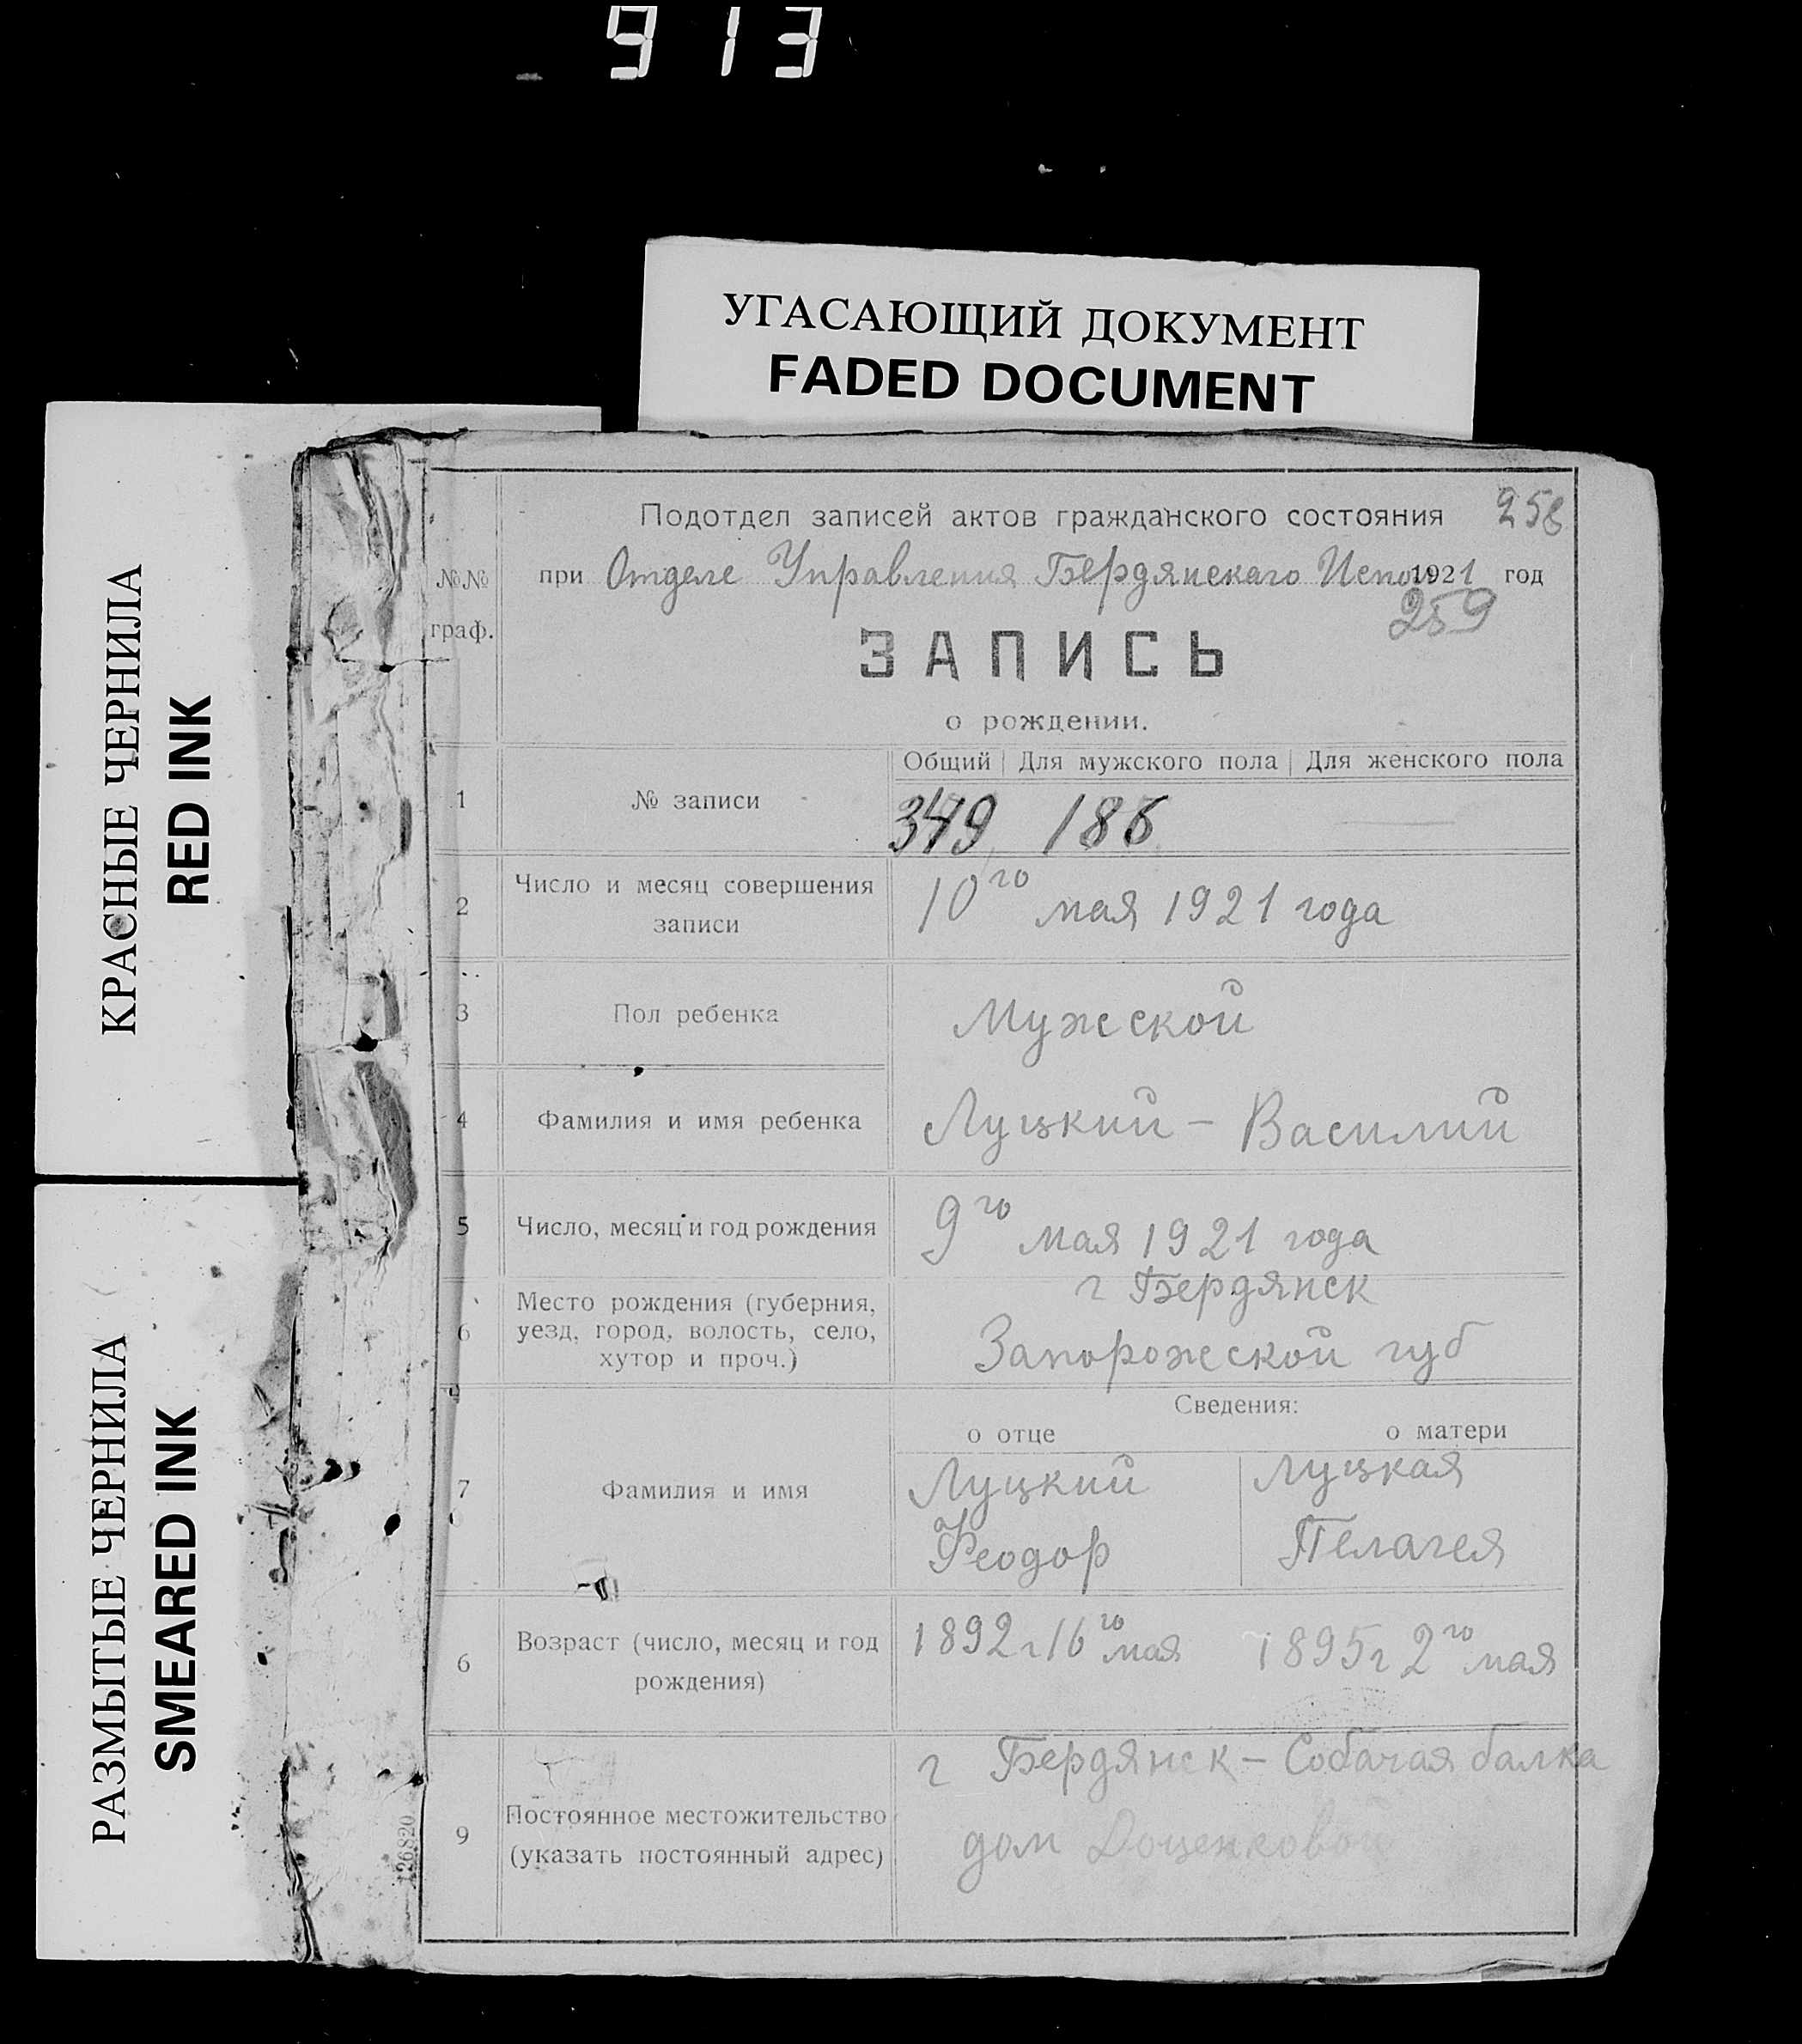 913
УГАСАЮЩИЙ ДОКУМЕНТ
FADED DOCUMENT
КРАСНЫЕ ЧЕРНИЛА
RED INK
РАЗМЫТЫЕ ЧЕРНИЛА
SMEARED INK
Подотдел записей актов гражданского состояния 258
№№ граф.
при Отделе Управления Бердянскаго Испол 1921 год
259
ЗАПИСЬ
о рождении.
Общий Для мужского пола Для женского пола
1 № записи 349 186
2 Число и месяц совершения записи 10го мая 1921 года
3 Пол ребенка Мужской
4 Фамилия и имя ребенка Луцкий - Василий
5 Число, месяц и год рождения 9го мая 1921 года
6 Место рождения (губерния, уезд, город, волость, село, хутор и проч.) г Бердянск
Запорожской губ
Сведения:
о отце о матери
7 Фамилия и имя Луцкий Луцкая
Феодор Пелагея
6 Возраст (число, месяц и год рождения) 1892 г 16го мая 1895 г 2го мая
9 Постоянное местожительство (указать постоянный адрес) г Бердянск - Собачая балка
дом Доценковой
126820